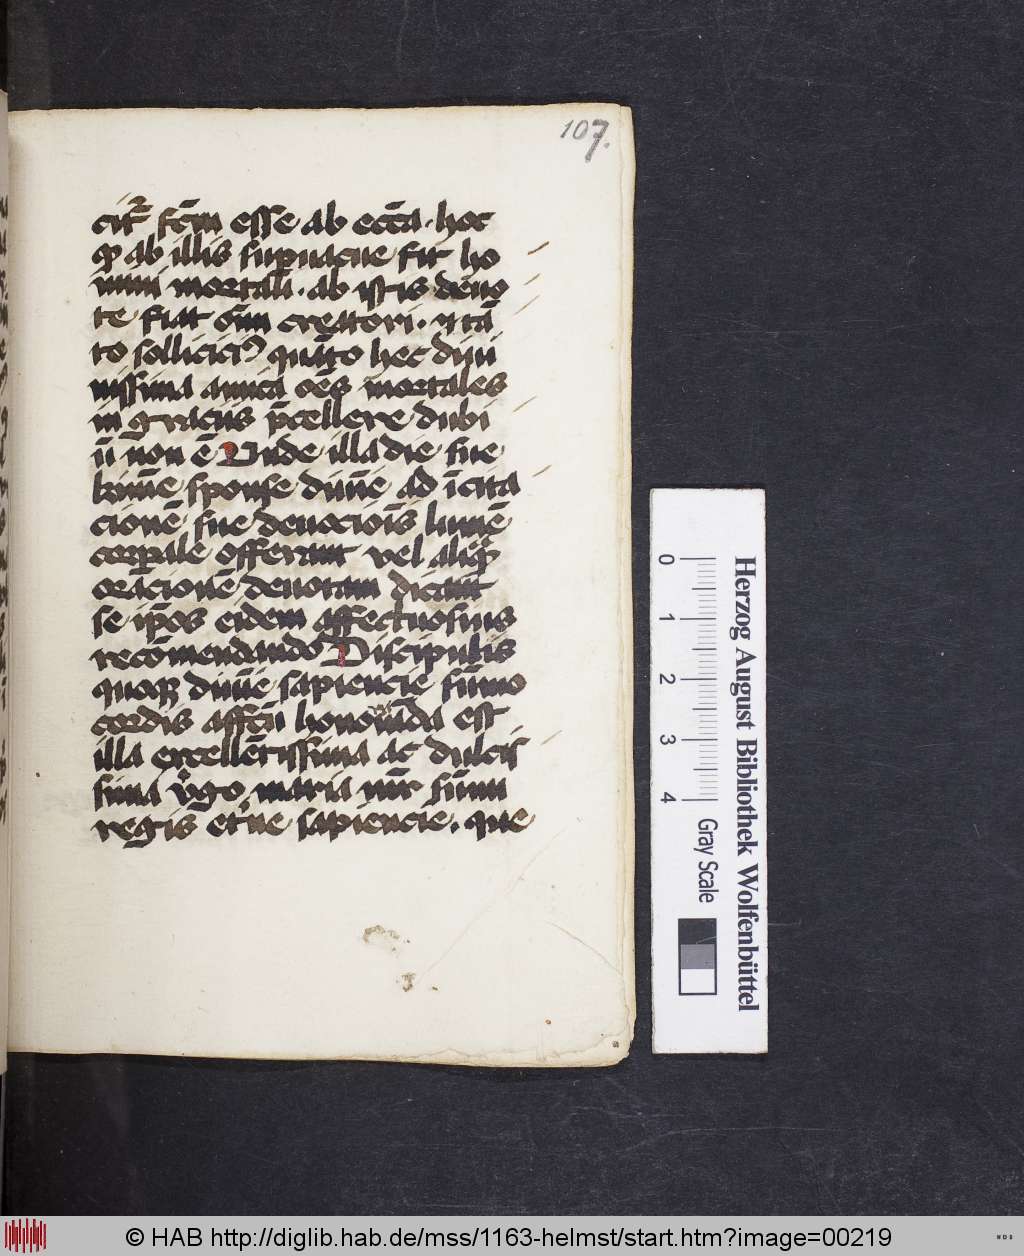 107.
cit͛ fc̄m esse ab ecc̄a · hoc
qͥ ab illis supuacue fit ho
mini mortali · ab istis deuo
te fiat om̄ creatori · et tā
to sollicicꝰ quāto hec diui
nissima amica oēs mortales
in gracius p̄cellere dubi
ū non ē Unde illa die sue
kime sponse diuīe ad īcita
cionē sue deuociōis lumē
corꝑale offerant vel aliqͣ
oracionē deuotam dicant
se ip̄os eidem affectuosius
recōmendando Discipulis
quoqꝫ diuīe sapiencie sūmo
cordis affcū honorāda est
illa excellētissima ac dulcis
sima v̊go maria mr̄ sūmi
regis et̄ne sapiencie · que
Herzog August Bibliothek Wolfenbüttel
0 1 2 3 4 Gray Scale
© HAB http://diglib.hab.de/mss/1163-helmst/start.htm?image=00219